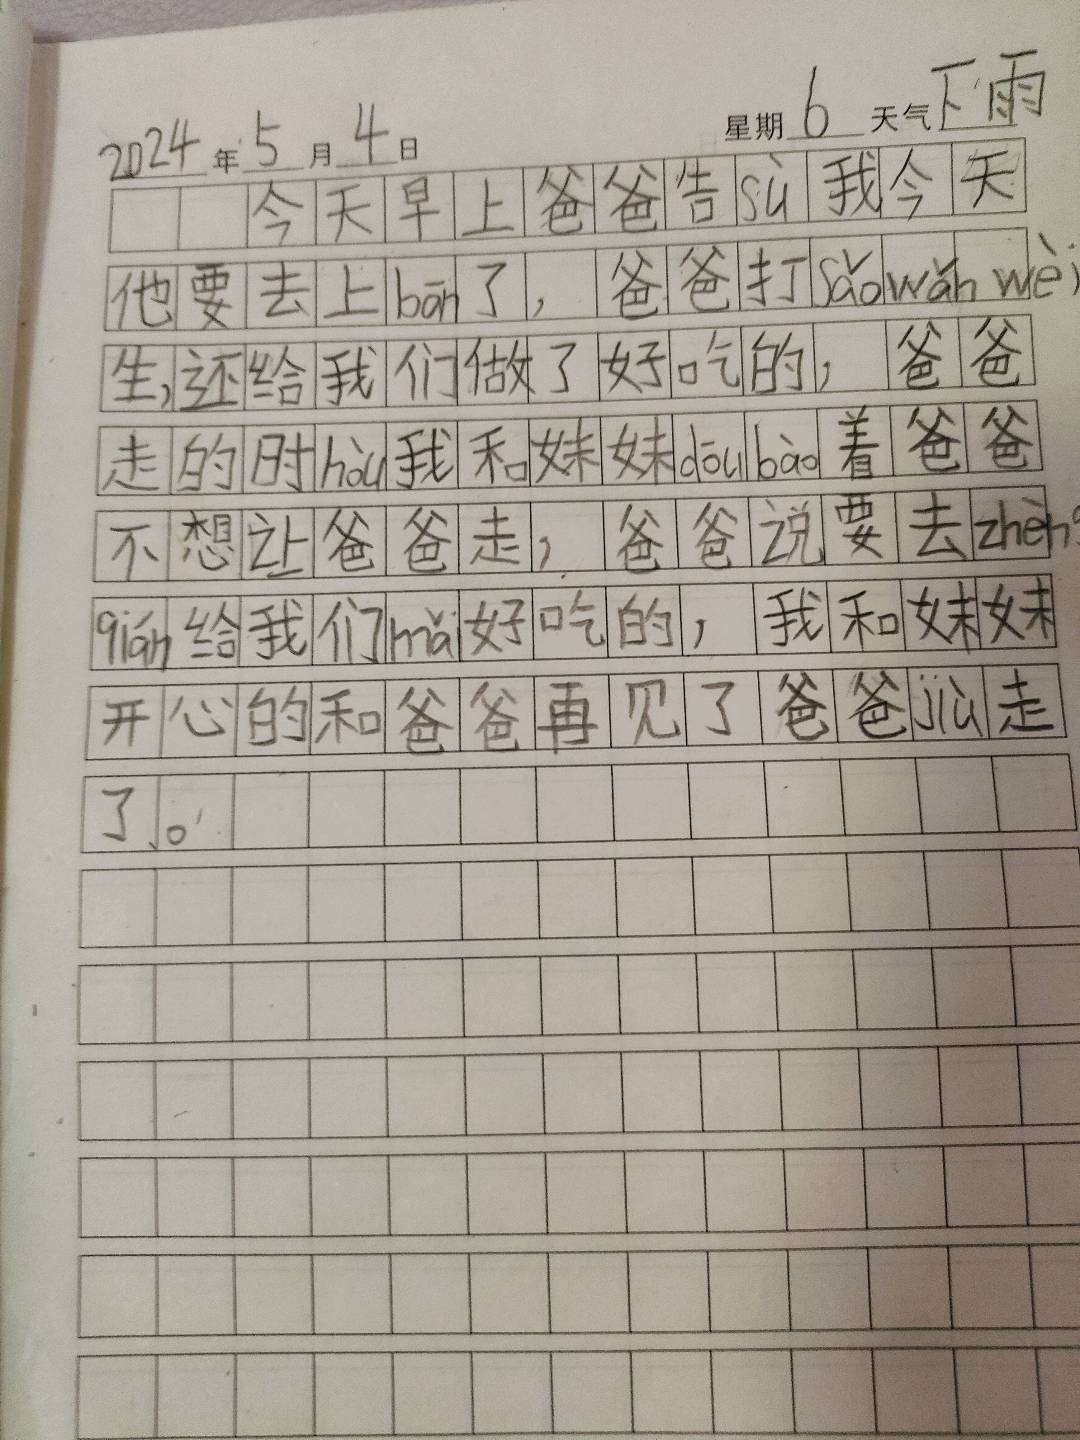 2024年5月4日 星期6 天气下雨
今天早上爸爸告sù我今天
他要去上bān了，爸爸打sǎowǎn wèi
生，还给我们做了好吃的，爸爸
走的时hòu我和妹妹dōubào着爸爸
不想让爸爸走，爸爸说要去zhèng
qián给我们mǎi好吃的，我和妹妹
开心的和爸爸再见了爸爸jiù走
了。